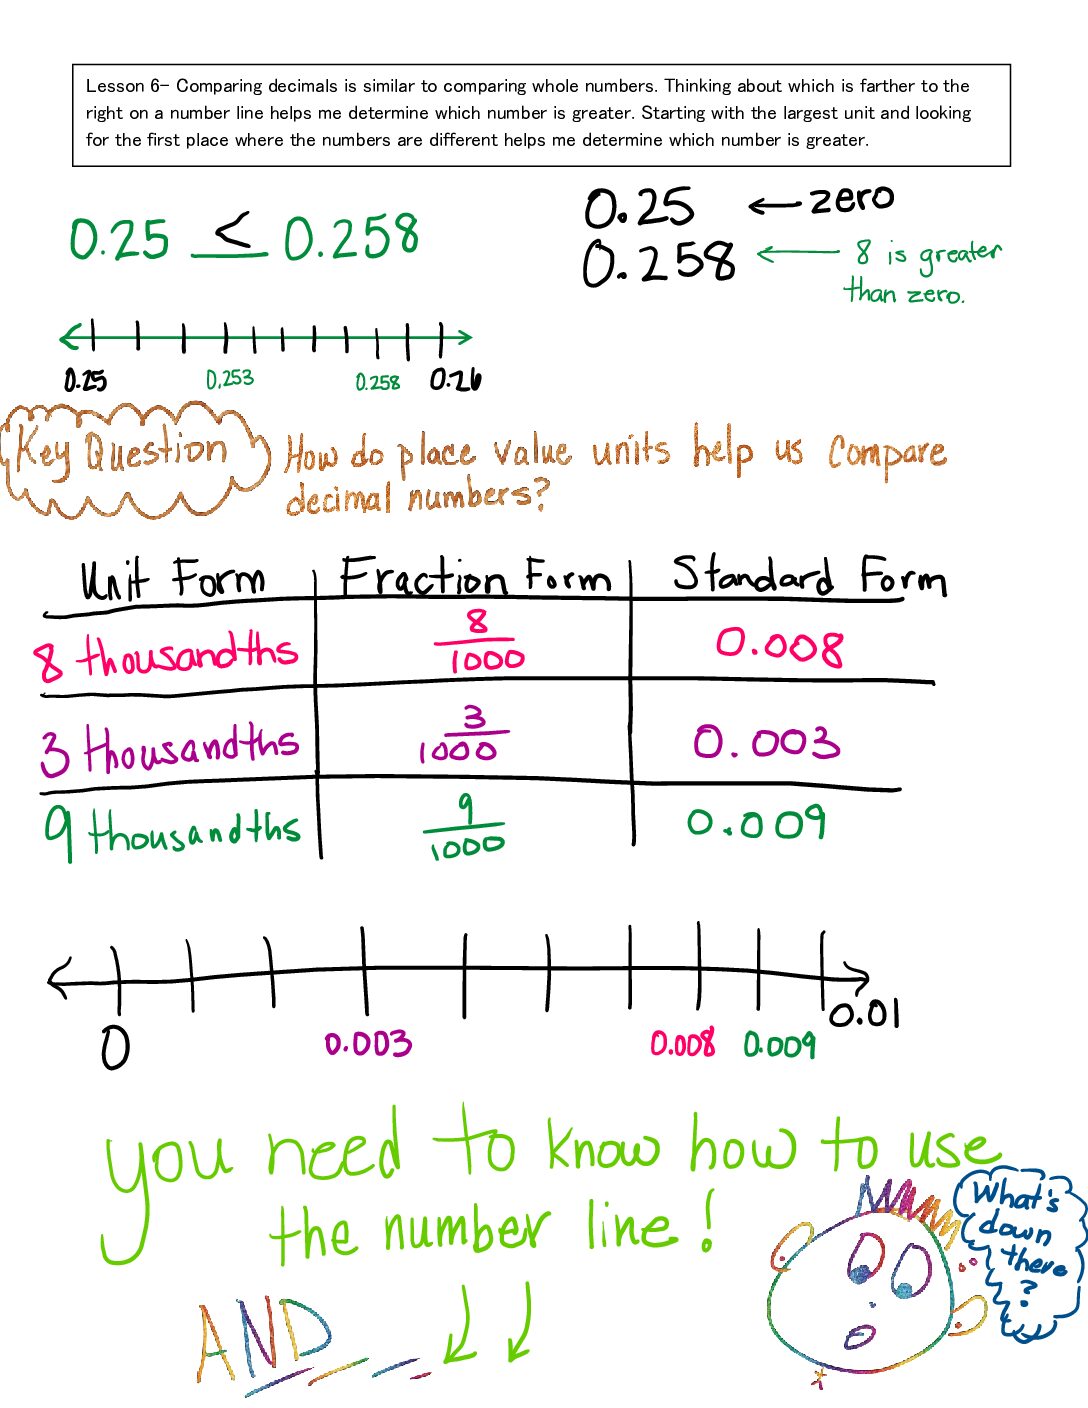 Lesson 6- Comparing decimals is similar to comparing whole numbers. Thinking about which is farther to the
right on a number line helps me determine which number is greater. Starting with the largest unit and looking
for the first place where the numbers are different helps me determine which number is greater.
0.25 < 0.258
0.25 ← zero
0.258 ← 8 is greater
than zero.
0.25 0.253 0.258 0.26
Key Question How do place value units help us compare
decimal numbers?
Unit Form Fraction Form Standard Form
8 thousandths 8/1000 0.008
3 thousandths 3/1000 0.003
9 thousandths 9/1000 0.009
0 0.003 0.008 0.009 0.01
you need to know how to use
the number line!
What's
down
there
?
AND